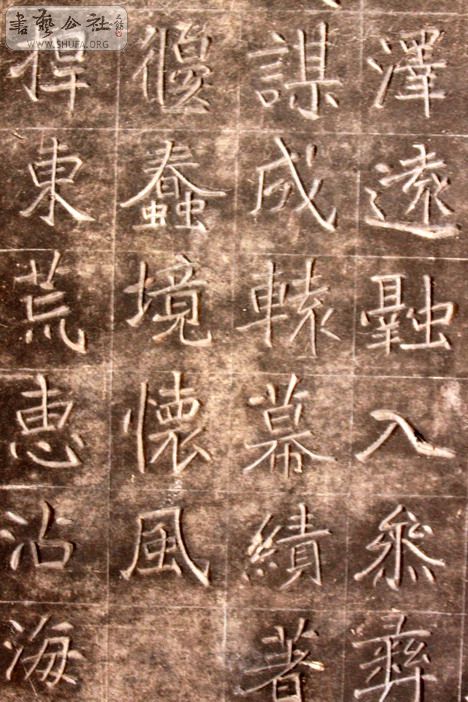 書藝公社
WWW.SHUFA.ORG
澤遠融入參彝
謀成轅幕績著
蠢境懷風
捍東荒惠沾海